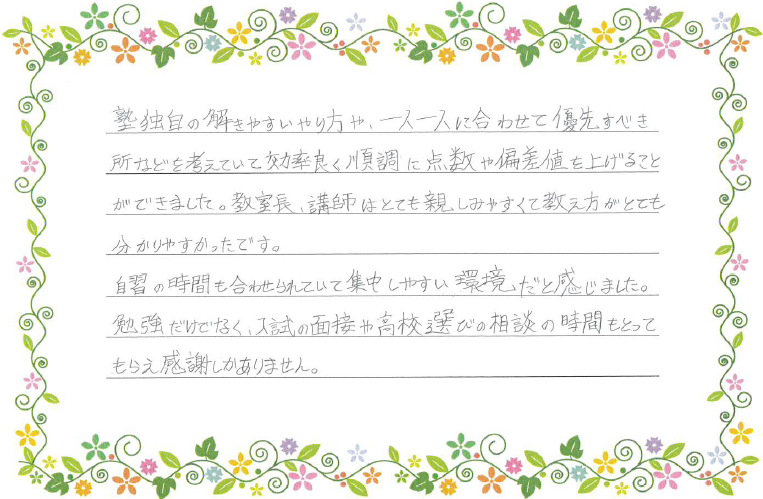 塾独自の解きやすいやり方や、一人一人に合わせて優先すべき
所などを考えていて効率良く順調に点数や偏差値を上げること
ができました。教室長、講師はとても親しみやすくて教え方がとても
分かりやすかったです。
自習の時間も合わせられていて集中しやすい環境だと感じました。
勉強だけでなく、入試の面接や高校選びの相談の時間もとって
もらえ感謝しかありません。